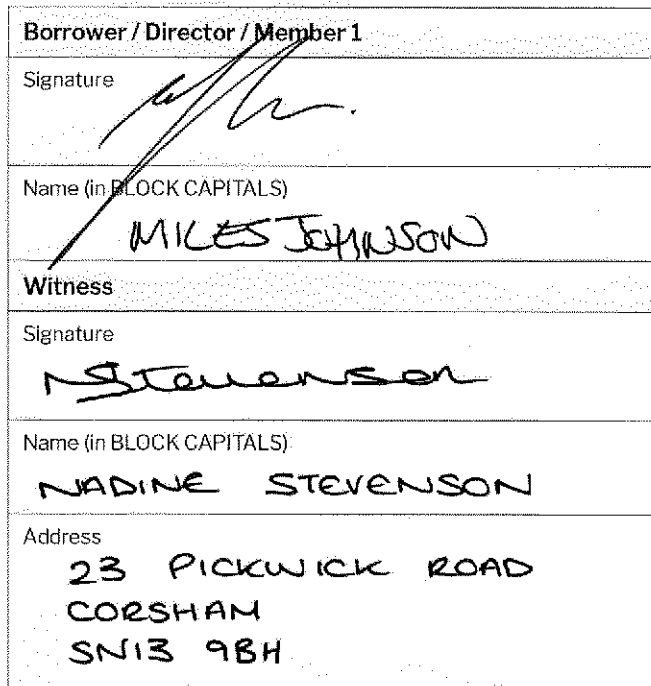 Borrower / Director / Member 1
Signature
Name (in BLOCK CAPITALS)
MILES JOHNSON
Witness
Signature
NStevenson
Name (in BLOCK CAPITALS)
NADINE STEVENSON
Address
23 PICKWICK ROAD
CORSHAM
SN13 9BH